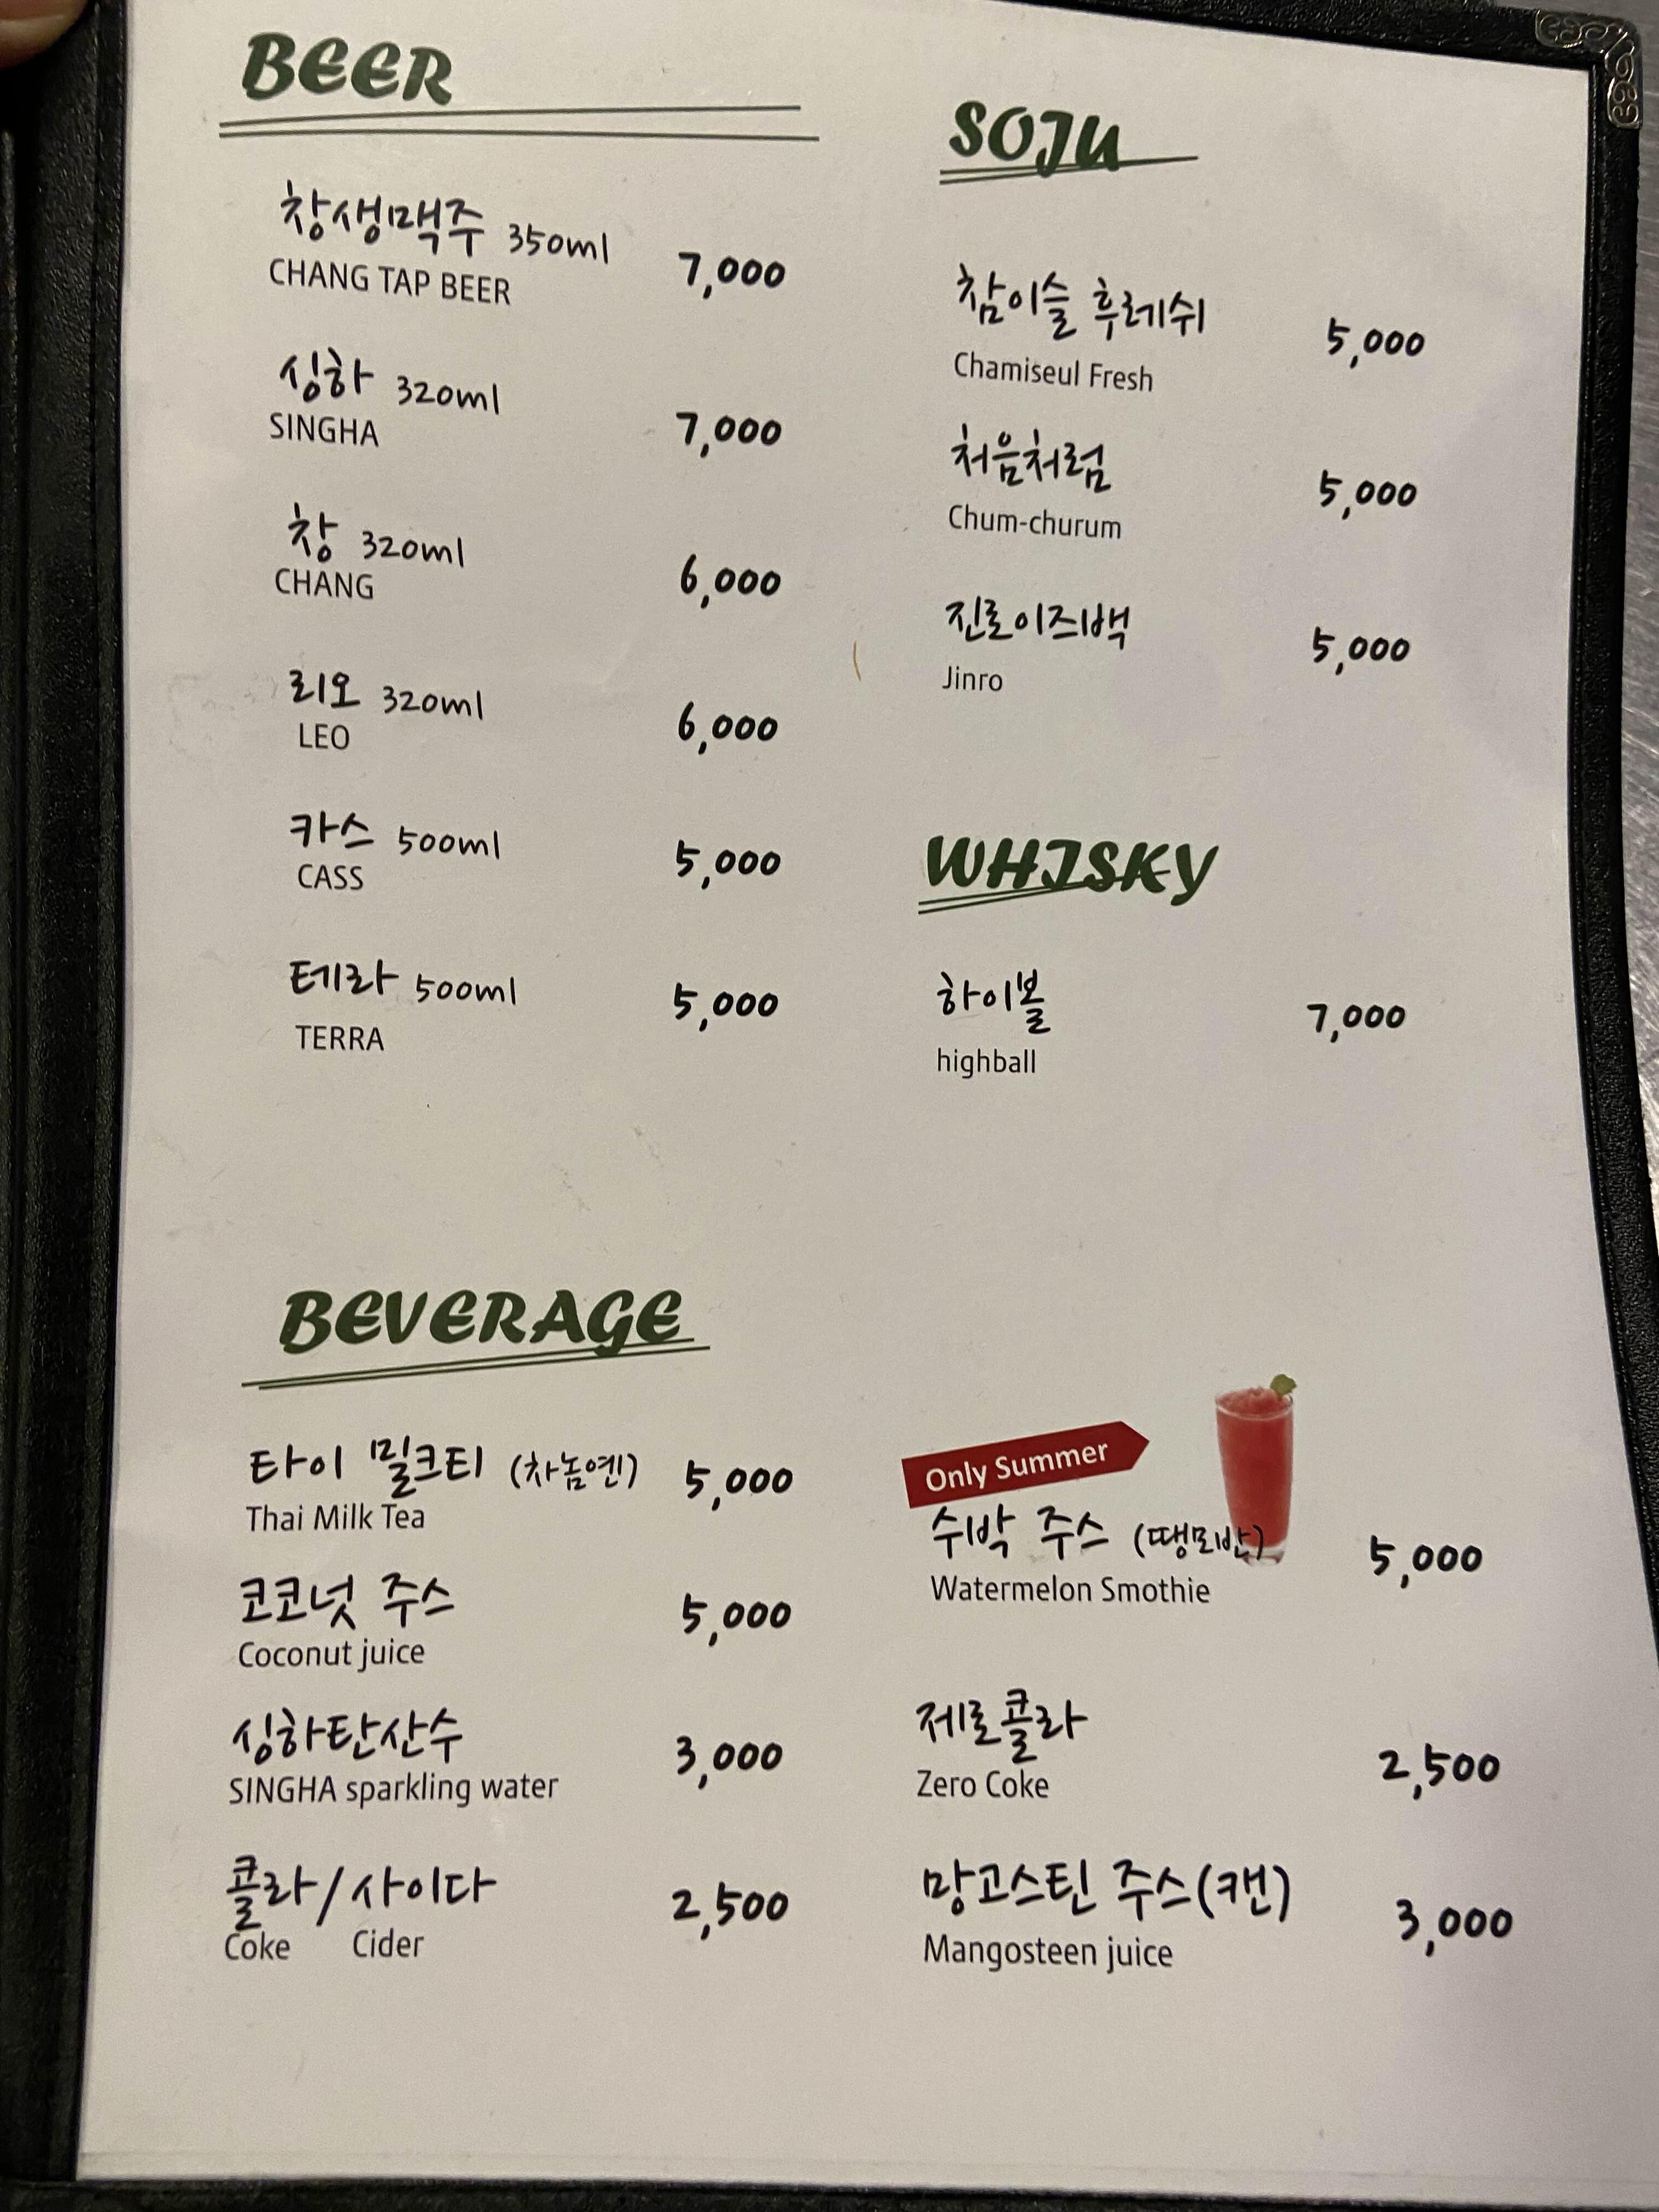 BEER
창생맥주 350ml 7,000
CHANG TAP BEER
싱하 320ml 7,000
SINGHA
창 320ml 6,000
CHANG
리오 320ml 6,000
LEO
카스 500ml 5,000
CASS
테라 500ml 5,000
TERRA
SOJU
참이슬 후레쉬 5,000
Chamiseul Fresh
처음처럼 5,000
Chum-churum
진로이즈백 5,000
Jinro
WHISKY
하이볼 7,000
highball
BEVERAGE
타이 밀크티 (차놈옌) 5,000
Thai Milk Tea
코코넛 주스 5,000
Coconut juice
싱하탄산수 3,000
SINGHA sparkling water
콜라/사이다 2,500
Coke Cider
Only Summer
수박 주스 (땡모반) 5,000
Watermelon Smothie
제로콜라 2,500
Zero Coke
망고스틴 주스(캔) 3,000
Mangosteen juice